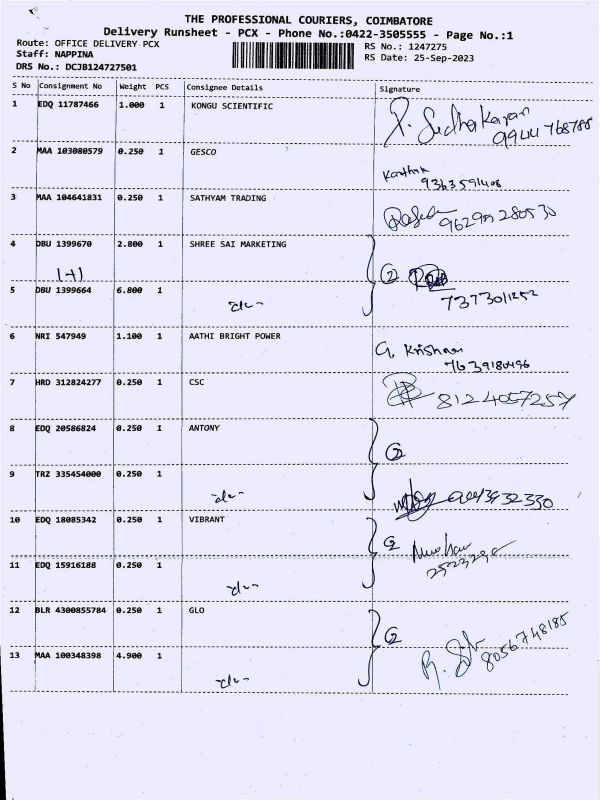 THE PROFESSIONAL COURIERS, COIMBATORE
Delivery Runsheet - PCX - Phone No.:0422-3505555 - Page No.:1
Route: OFFICE DELIVERY PCX RS No.: 1247275
Staff: NAPPINA RS Date: 25-Sep-2023
DRS No.: DCJB124727501
S No Consignment No Weight PCS Consignee Details Signature
1 EDQ 11787466 1.000 1 KONGU SCIENTIFIC
P. Sudhakaran
9944768788
2 MAA 103080579 0.250 1 GESCO
Karthik
9363591408
3 MAA 104641831 0.250 1 SATHYAM TRADING
9629280530
4 DBU 1399670 2.800 1 SHREE SAI MARKETING
1+1
2
5 DBU 1399664 6.800 1
7373011252
6 NRI 547949 1.100 1 AATHI BRIGHT POWER
G. Krishnan
7639180496
7 HRD 312824277 0.250 1 CSC
8124057257
8 EDQ 20586824 0.250 1 ANTONY
2
9 TRZ 335454000 0.250 1
10 EDQ 18085342 0.250 1 VIBRANT
2
11 EDQ 15916188 0.250 1
12 BLR 4300855784 0.250 1 GLO
2
8056748185
13 MAA 100348398 4.900 1